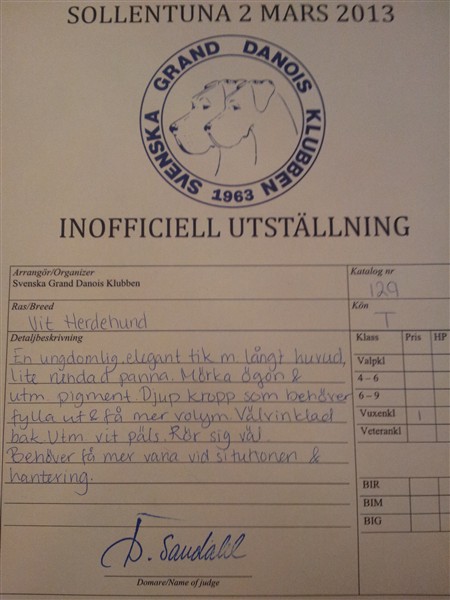 SOLLENTUNA 2 MARS 2013
SVENSKA GRAND DANOIS KLUBBEN
1963
INOFFICIELL UTSTÄLLNING
Arrangör/Organizer
Svenska Grand Danois Klubben
Katalog nr
129
Ras/Breed
Vit Herdehund
Kön
T
Detaljbeskrivning
En ungdomlig, elegant tik m. långt huvud,
lite rundad panna. Mörka ögon &
utm pigment. Djup kropp som behöver
fylla ut & få mer volym. Välvinklad
bak. Utm vit päls. Rör sig väl.
Behöver få mer vana vid situationen &
hantering.
Klass Pris HP
Valpkl
4-6
6-9
Vuxenkl 1
Veterankl
BIR
BIM
BIG
Domare/Name of judge